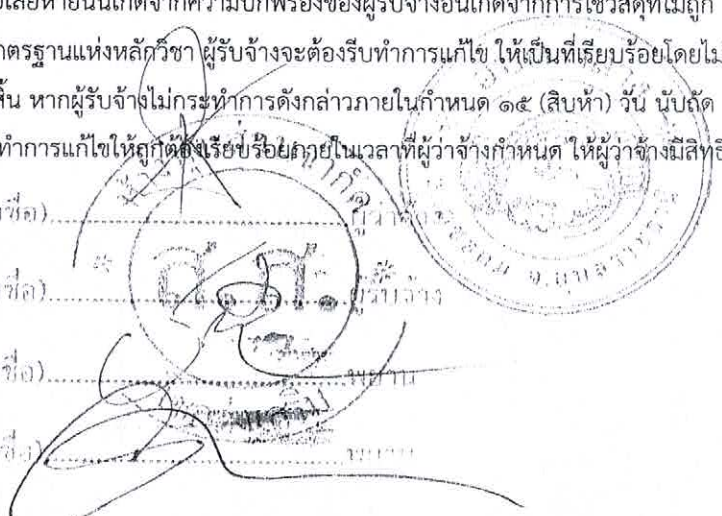 เสียหายนั้นเกิดจากความบกพร่องของผู้รับจ้างอันเกิดจากการใช้วัสดุที่ไม่ถูก
ตรฐานแห่งหลักวิชา ผู้รับจ้างจะต้องรีบทำการแก้ไข ให้เป็นที่เรียบร้อยโดยไม่
สิ้น หากผู้รับจ้างไม่กระทำการดังกล่าวภายในกำหนด ๑๕ (สิบห้า) วัน นับถัด
ทำการแก้ไขให้ถูกต้องเรียบร้อยภายในเวลาที่ผู้ว่าจ้างกำหนด ให้ผู้ว่าจ้างมีสิทธิ
ชื่อ)..............................ผู้ว่าจ้าง
ชื่อ)..............................ผู้รับจ้าง
ชื่อ)..............................พยาน
ชื่อ)..............................พยาน